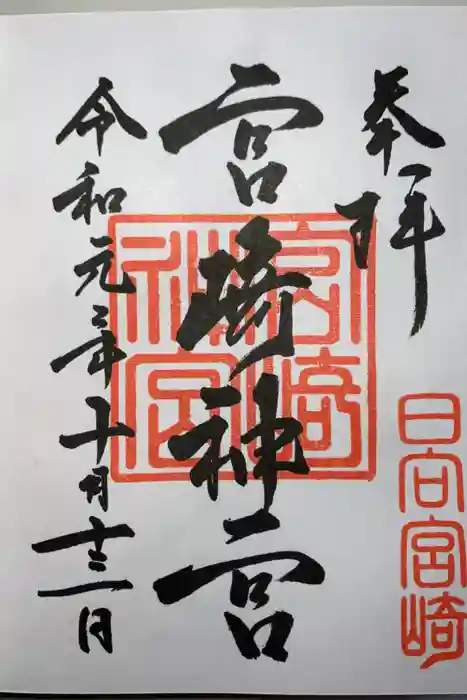 奉拝
日向宮崎
宮崎神宮
宮崎
神宮
令和元年十月十三日